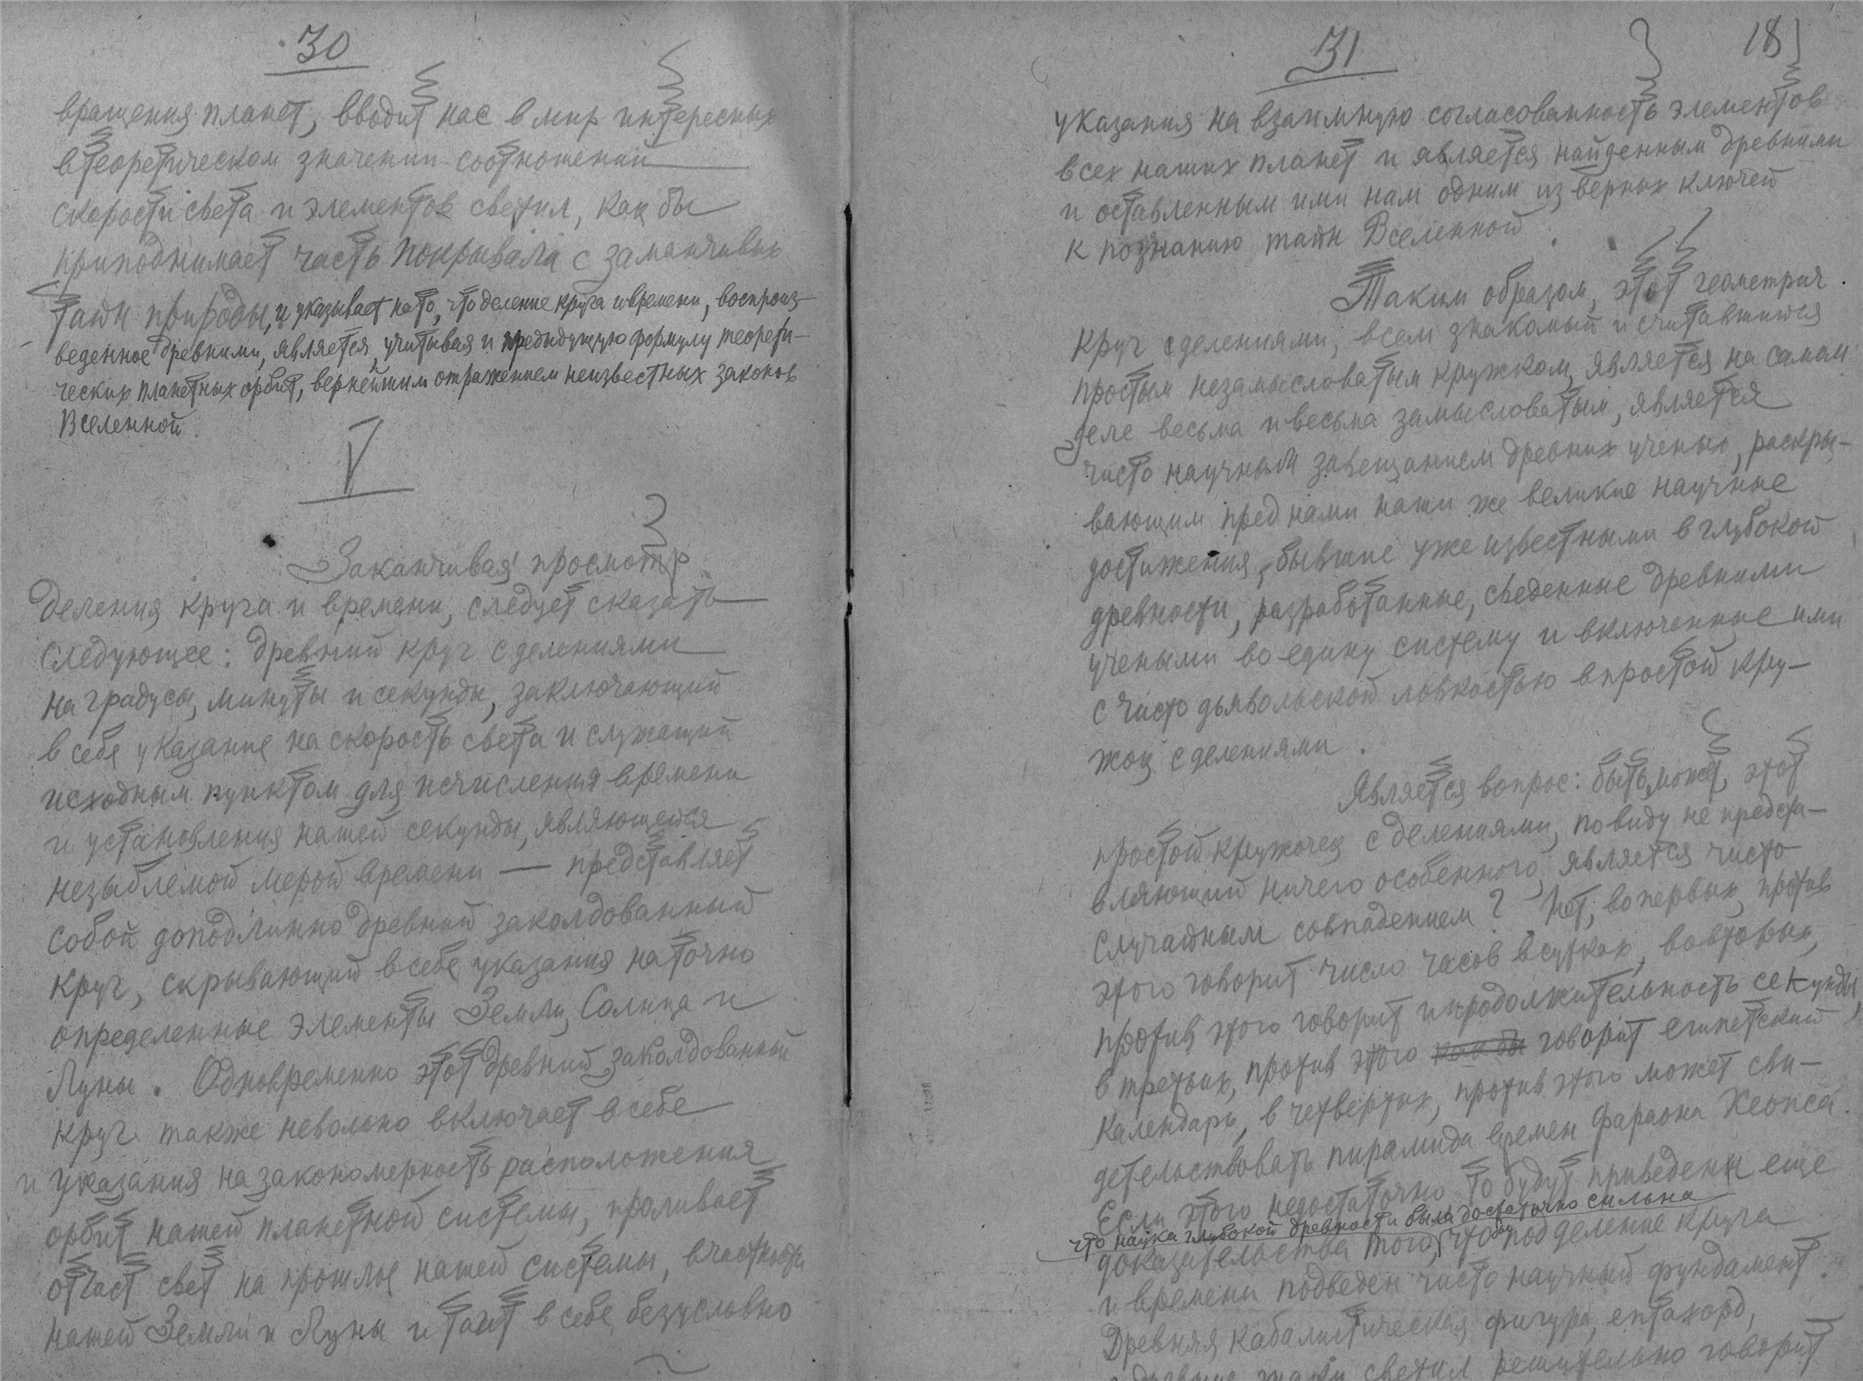 30
вращения планет, вводит нас в мир интересных
в теоретическом значении соотношений
скорости света и элементов светил, как бы
приподнимает часть покрывала с заманчивых
таин природы, и указывает на то, что деление круга и времени, воспроиз-
веденное древними, является, учитывая и предыдущую формулу теорети-
ческих планетных орбит, вернейшим отражением неизвестных законов
Вселенной.
V
Заканчивая просмотр
деления круга и времени, следует сказать
следующее: древний круг с делениями
на градусы, минуты и секунды, заключающий
в себе указание на скорость света и служащий
исходным пунктом для исчисления времени
и установления нашей секунды, являющейся
незыблемой мерой времени — представляет
собой доподлинно древний заколдованный
круг, скрывающий в себе указания на точно
определенные элементы Земли, Солнца и
Луны. Одновременно этот древний заколдованный
круг также невольно включает в себе
и указания на закономерность расположения
орбит нашей планетной системы, проливает
отчаст свет на прошлое нашей системы, в частности
нашей Земли и Луны и таит в себе безусловно
31
18
указания на взаимную согласованность элементов
всех наших планет и является найденным древними
и оставленным ими нам одним из верных ключей
к познанию таин Вселенной.
Таким образом, этот геометрич.
круг с делениями, всем знакомый и считавшийся
простым незамысловатым кружком, является на самом
деле весьма и весьма замысловатым, является
чисто научным завещанием древних ученых, раскры-
вающим пред нами наши же великие научные
достижения, бывшие уже известными в глубокой
древности, разработанные, сведенные древними
учеными во едину систему и включенные ими
с чисто дьявольской ловкостью в простой кру-
жок с делениями.
Является вопрос: быть может, этот
простой кружочек с делениями, по виду не предста-
вляющий ничего особенного, является чисто
случайным совпадением? Нет, во первых, против
этого говорит число часов в сутках, во вторых,
против этого говорит и продолжительность секунды,
в третьих, против этого говорит египетский
календарь, в четвертых, против этого может сви-
детельствовать пирамида времен фараона Хеопса.
Если этого недостаточно то будут приведены еще
что наука глубокой древности была достаточно сильна
доказательства того, что под деление круга
и времени подведен чисто научный фундамент.
Древняя кабалистическая фигура, ептахорд,
знаки светил решительно говорит